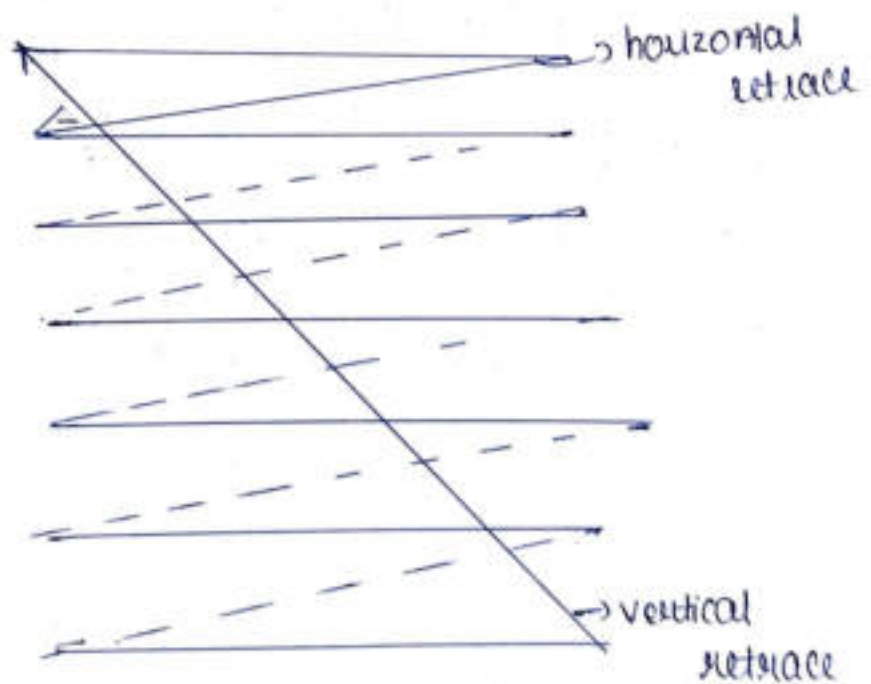 horizontal
retrace
vertical
retrace